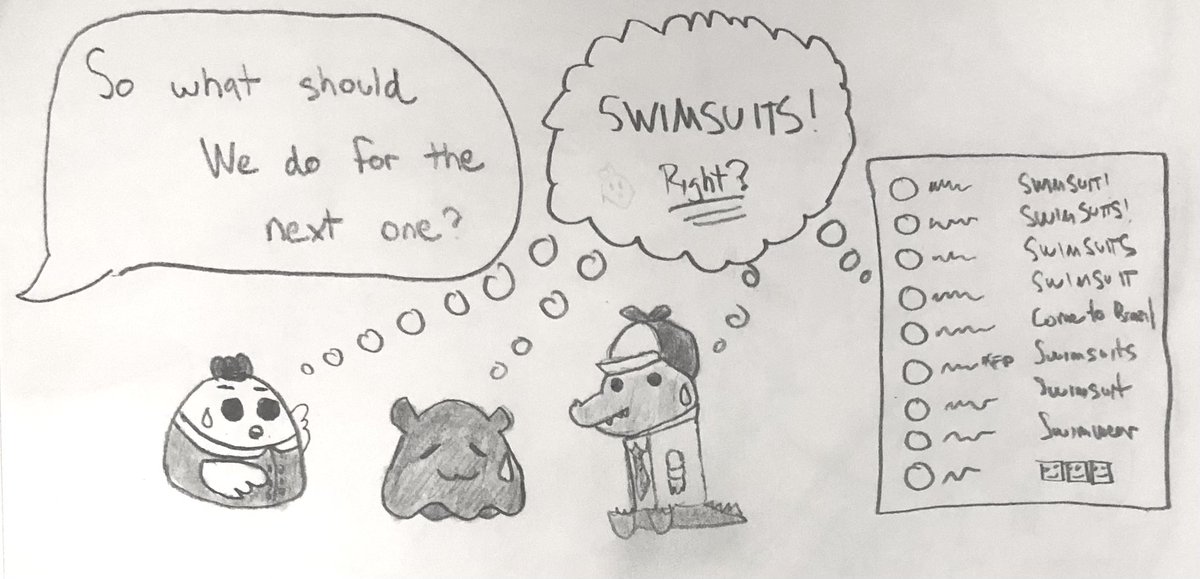 So what should
We do for the
next one?
SWIMSUITS!
Right?
SWIMSUIT!
SWIMSUITS!
SWIMSUITS
SWIMSUIT
Come to Brazil
Swimsuits
Swimsuit
Swimwear